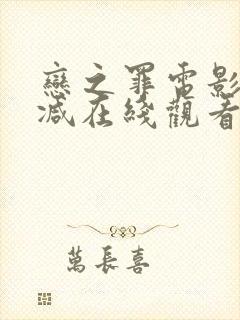 戀之罪電影
減在綫觀看
萬長喜